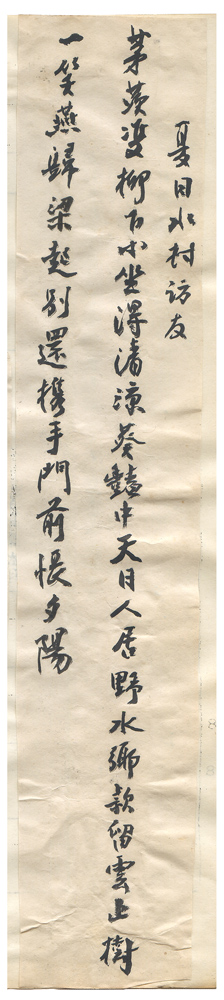 夏日水村訪友
茅茨雙柳下小坐得清涼葵豔中天日人居野水鄉款留雲上樹
一笑燕歸梁起別還携手門前悵夕陽